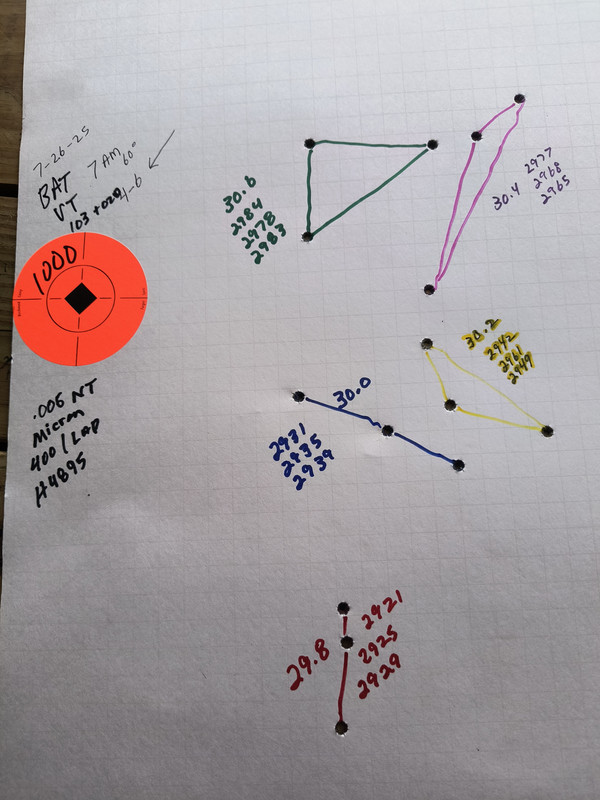 7-26-25
BAT
7 AM
60°
VT
103 + 020
4-6
1000
.005 NT
Micron
400 / LAP
H4895
30.6
2984
2978
2983
30.4
2977
2968
2965
30.2
2942
2941
2949
30.0
2931
2935
2939
29.8
2921
2925
2929